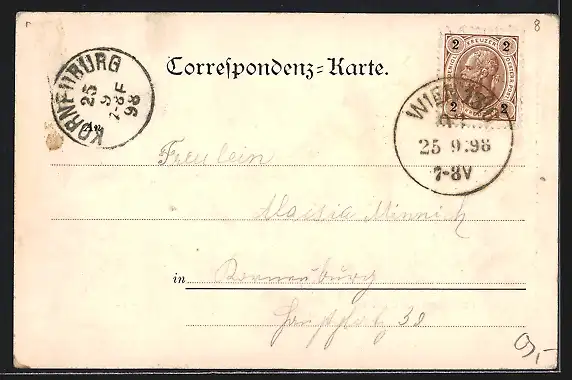 8
Correspondenz=Karte.
2 KREUZER 2
2 2
WIEN
25 9.98
7-8V
KORNEUBURG
25
9
7-8F
98
An
Freulein
Maisia Minnich
in Korneuburg
Hauptplatz 38